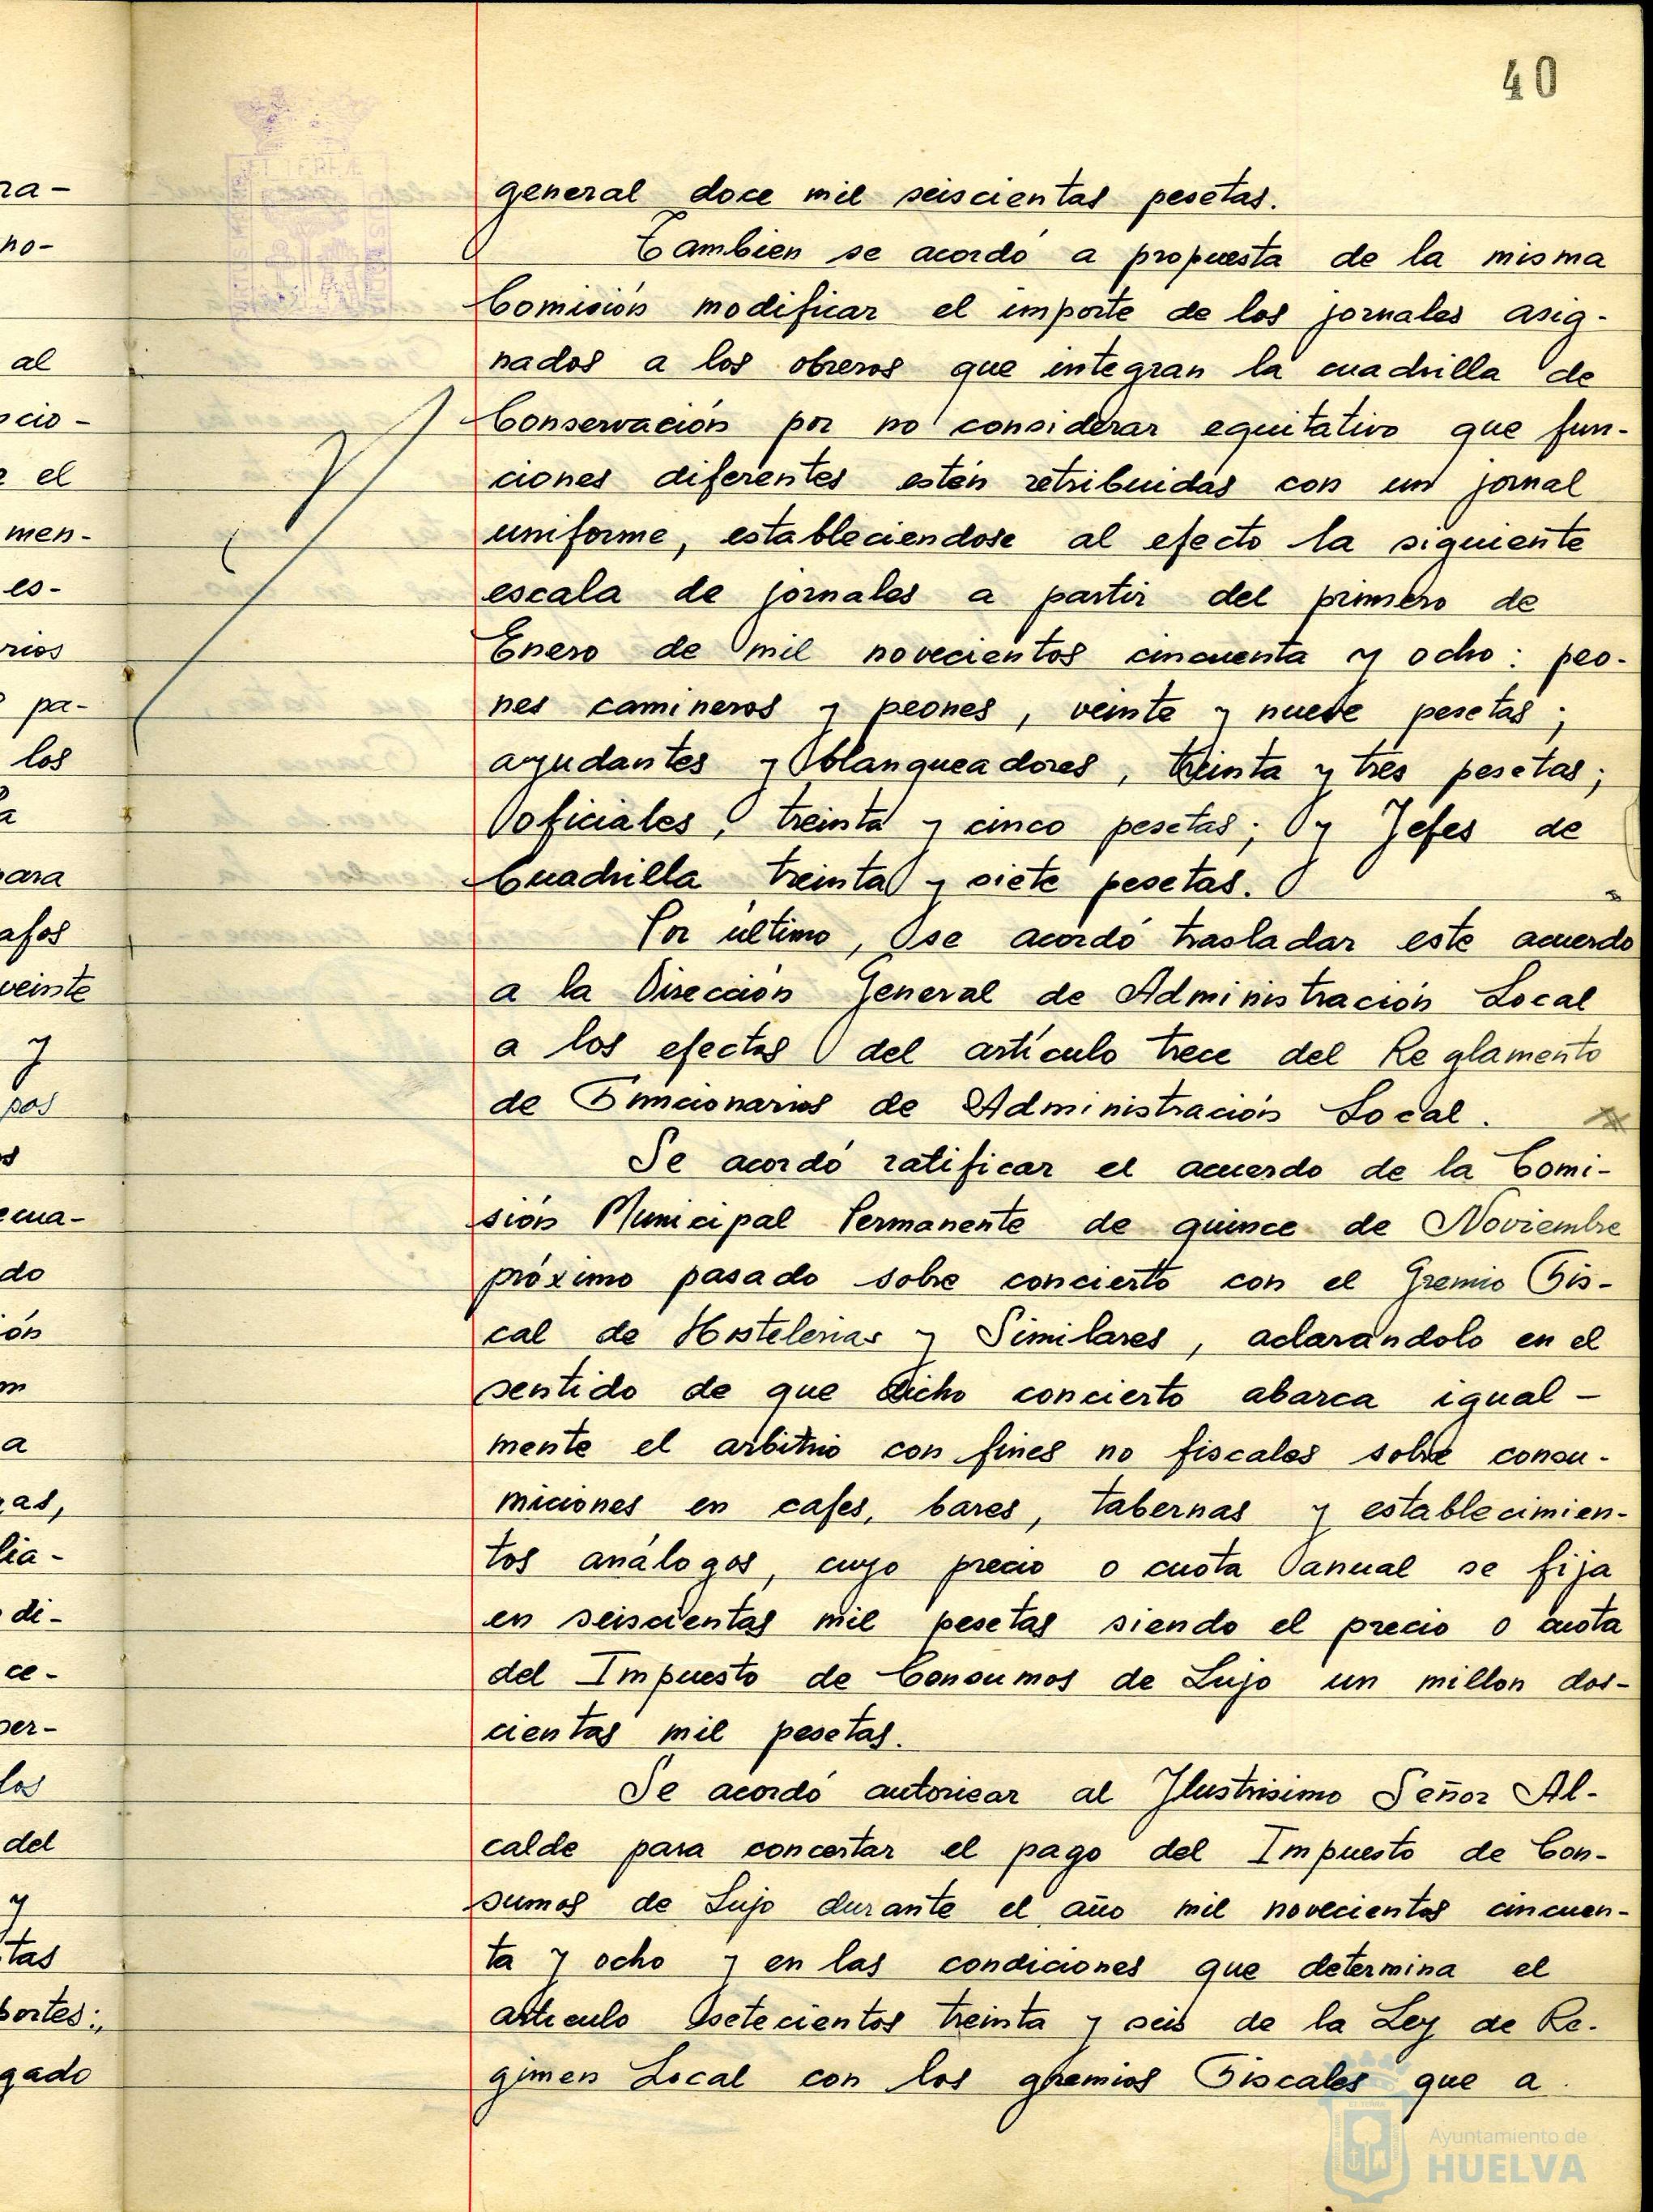 40
general doce mil seiscientas pesetas.
Tambien se acordó a propuesta de la misma
Comisión modificar el importe de los jornales asig-
nados a los obreros que integran la cuadrilla de
Conservación por no considerar equitativo que fun-
ciones diferentes estén retribuidas con un jornal
uniforme, estableciendose al efecto la siguiente
escala de jornales a partir del primero de
Enero de mil novecientos cincuenta y ocho: peo-
nes camineros y peones, veinte y nueve pesetas;
ayudantes y blanqueadores, treinta y tres pesetas;
oficiales, treinta y cinco pesetas; y Jefes de
Cuadrilla treinta y siete pesetas.
Por último, se acordó trasladar este acuerdo
a la Dirección General de Administración Local
a los efectos del artículo trece del Reglamento
de Funcionarios de Administración Local.
Se acordó ratificar el acuerdo de la Comi-
sión Municipal Permanente de quince de Noviembre
próximo pasado sobre concierto con el Gremio Fis-
cal de Hostelerias y Similares, aclarandolo en el
sentido de que dicho concierto abarca igual-
mente el arbitrio con fines no fiscales sobre consu-
miciones en cafes, bares, tabernas y establecimien-
tos análogos, cuyo precio o cuota anual se fija
en seiscientas mil pesetas siendo el precio o cuota
del Impuesto de Consumos de Lujo un millon dos-
cientas mil pesetas.
Se acordó autorizar al Ilustrisimo Señor Al-
calde para concertar el pago del Impuesto de Con-
sumos de Lujo durante el año mil novecientos cincuen-
ta y ocho y en las condiciones que determina el
articulo setecientos treinta y seis de la Ley de Re-
gimen Local con los gremios Fiscales que a
ra-
no-
al
cio-
el
men-
es-
rios
pa-
los
a
para
afos
veinte
y
pos
cua-
do
ión
m
a
ras,
lia-
di-
ce-
per-
los
del
y
tas
portes:,
gado
Ayuntamiento de
HUELVA